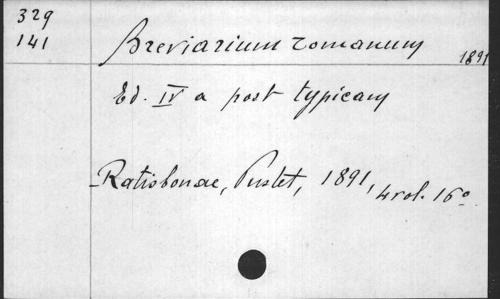 329
141
Breviarium romanum
1891
Ed. IV a post typicam
Ratisbonae, Pustet, 1891, 4 vol. 16°